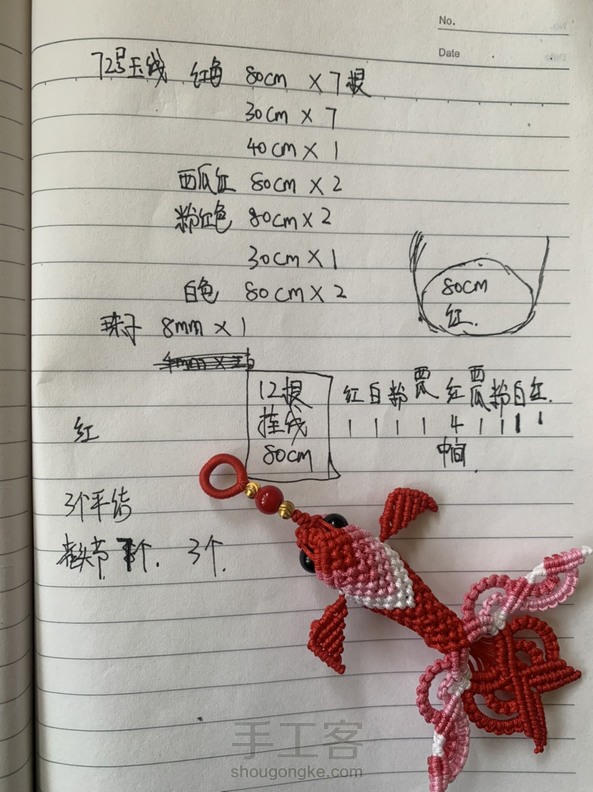 No.
Date
72号玉线 红色 80cm × 7根
30cm × 7
40cm × 1
西瓜红 80cm × 2
粉红色 80cm × 2
30cm × 1
白色 80cm × 2
80cm
红.
珠子 8mm × 1
12根
挂线
80cm
红白粉西瓜 红 西瓜 粉白红.
1 1 1 1 4 1 1 1 1
中间.
红
3个平结
个. 3个.
手工客
shougongke.com